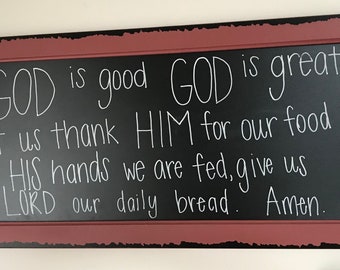 GOD is good GOD is great
us thank HIM for our food
HIS hands we are fed, give us
LORD our daily bread. Amen.